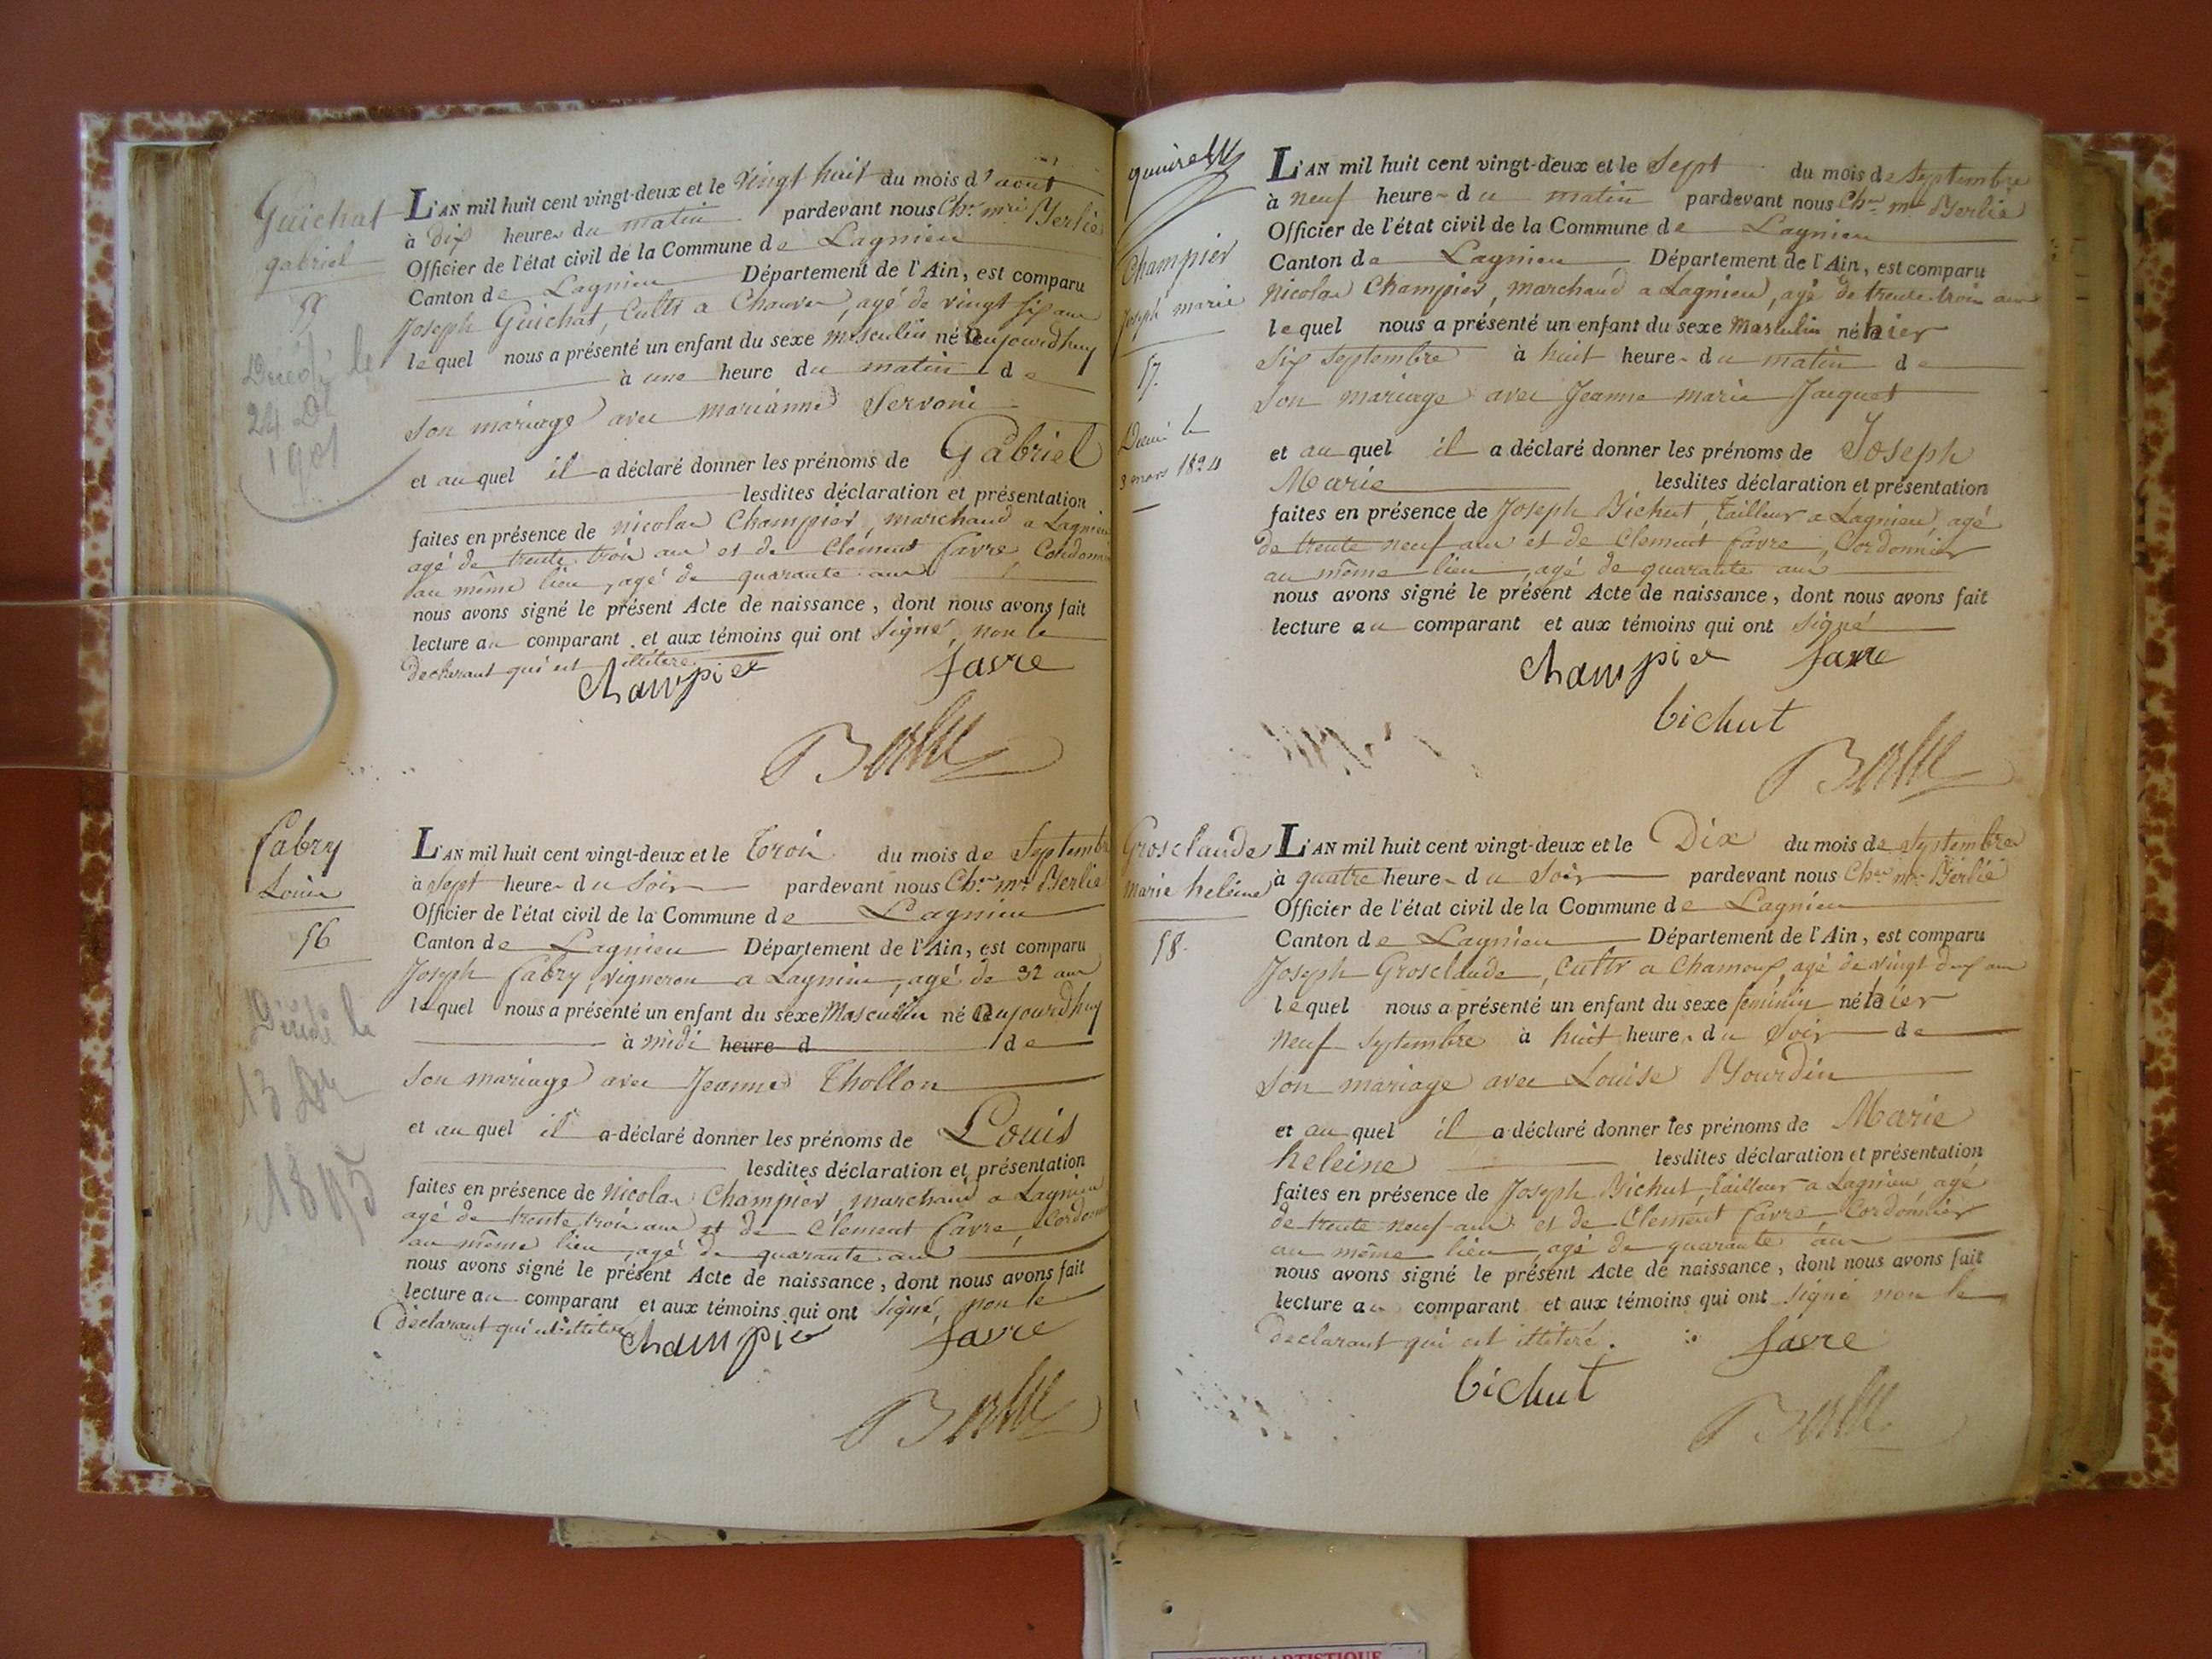 Guichat
gabriel
55
Décédé le
24
1901
L'AN mil huit cent vingt-deux et le vingt huit du mois d'août
à dix heures du matin pardevant nous Chles mrie Berlié
Officier de l'état civil de la Commune de Lagnieu
Canton de Lagnieu Département de l'Ain, est comparu
Joseph Guichat, Cultr a Chauver, agé de vingt six ans
lequel nous a présenté un enfant du sexe masculin né aujourdhuy
à une heure du matin de
son mariage avec marianne Servoni
et auquel il a déclaré donner les prénoms de Gabriel
lesdites déclaration et présentation
faites en présence de nicolas Champier, marchand a Lagnieu
agé de trente trois ans et de Clément favre, Cordonnier
au même lieu, agé de quarante ans
nous avons signé le présent Acte de naissance, dont nous avons fait
lecture au comparant et aux témoins qui ont signé, non le
declarant qui est illitéré
Champier favre
Berlié
fabry
Louis
56
Décédé le
13
1895
L'AN mil huit cent vingt-deux et le trois du mois de Septembre
à sept heures du soir pardevant nous Chles mrie Berlié
Officier de l'état civil de la Commune de Lagnieu
Canton de Lagnieu Département de l'Ain, est comparu
Joseph fabry, vigneron a Lagnieu, agé de 32 ans
lequel nous a présenté un enfant du sexe Masculin né aujourdhuy
à midi heure d de
son mariage avec Jeanne Thollon
et auquel il a déclaré donner les prénoms de Louis
lesdites déclaration et présentation
faites en présence de Nicolas Champier, marchand a Lagnieu
agé de trente trois ans et de Clement favre, Cordonnier
au même lieu, agé de quarante ans
nous avons signé le présent Acte de naissance, dont nous avons fait
lecture au comparant et aux témoins qui ont signé, non le
déclarant qui est illitéré
Champier favre
Berlié
Champier
Joseph marie
57.
Décédé le
3 mars 1824
L'AN mil huit cent vingt-deux et le Sept du mois de Septembre
à neuf heures du matin pardevant nous Chles mrie Berlié
Officier de l'état civil de la Commune de Lagnieu
Canton de Lagnieu Département de l'Ain, est comparu
Nicolas Champier, marchand a Lagnieu, agé de trente trois ans
lequel nous a présenté un enfant du sexe Masculin né hier
six septembre à huit heures du matin de
son mariage avec Jeanne marie Jacquet
et auquel il a déclaré donner les prénoms de Joseph
Marie lesdites déclaration et présentation
faites en présence de Joseph Bichut, tailleur a Lagnieu, agé
de trente neuf ans et de Clement favre, Cordonnier
au même lieu, agé de quarante ans
nous avons signé le présent Acte de naissance, dont nous avons fait
lecture au comparant et aux témoins qui ont signé
Champier favre
bichut
Berlié
Grosclaude
Marie heleine
58.
L'AN mil huit cent vingt-deux et le Dix du mois de Septembre
à quatre heures du soir pardevant nous Chles mrie Berlié
Officier de l'état civil de la Commune de Lagnieu
Canton de Lagnieu Département de l'Ain, est comparu
Joseph Grosclaude, Cultr a Chamoux, agé de vingt deux ans
lequel nous a présenté un enfant du sexe féminin né hier
neuf septembre à huit heures du soir de
son mariage avec Louise Bourdin
et auquel il a déclaré donner les prénoms de Marie
heleine lesdites déclaration et présentation
faites en présence de Joseph Bichut, tailleur a Lagnieu agé
de trente neuf ans et de Clement favre Cordonnier
au même lieu, agé de quarante ans
nous avons signé le présent Acte de naissance, dont nous avons fait
lecture au comparant et aux témoins qui ont signé non le
declarant qui est illitéré.
favre
bichut
Berlié
ARTISTIQUE